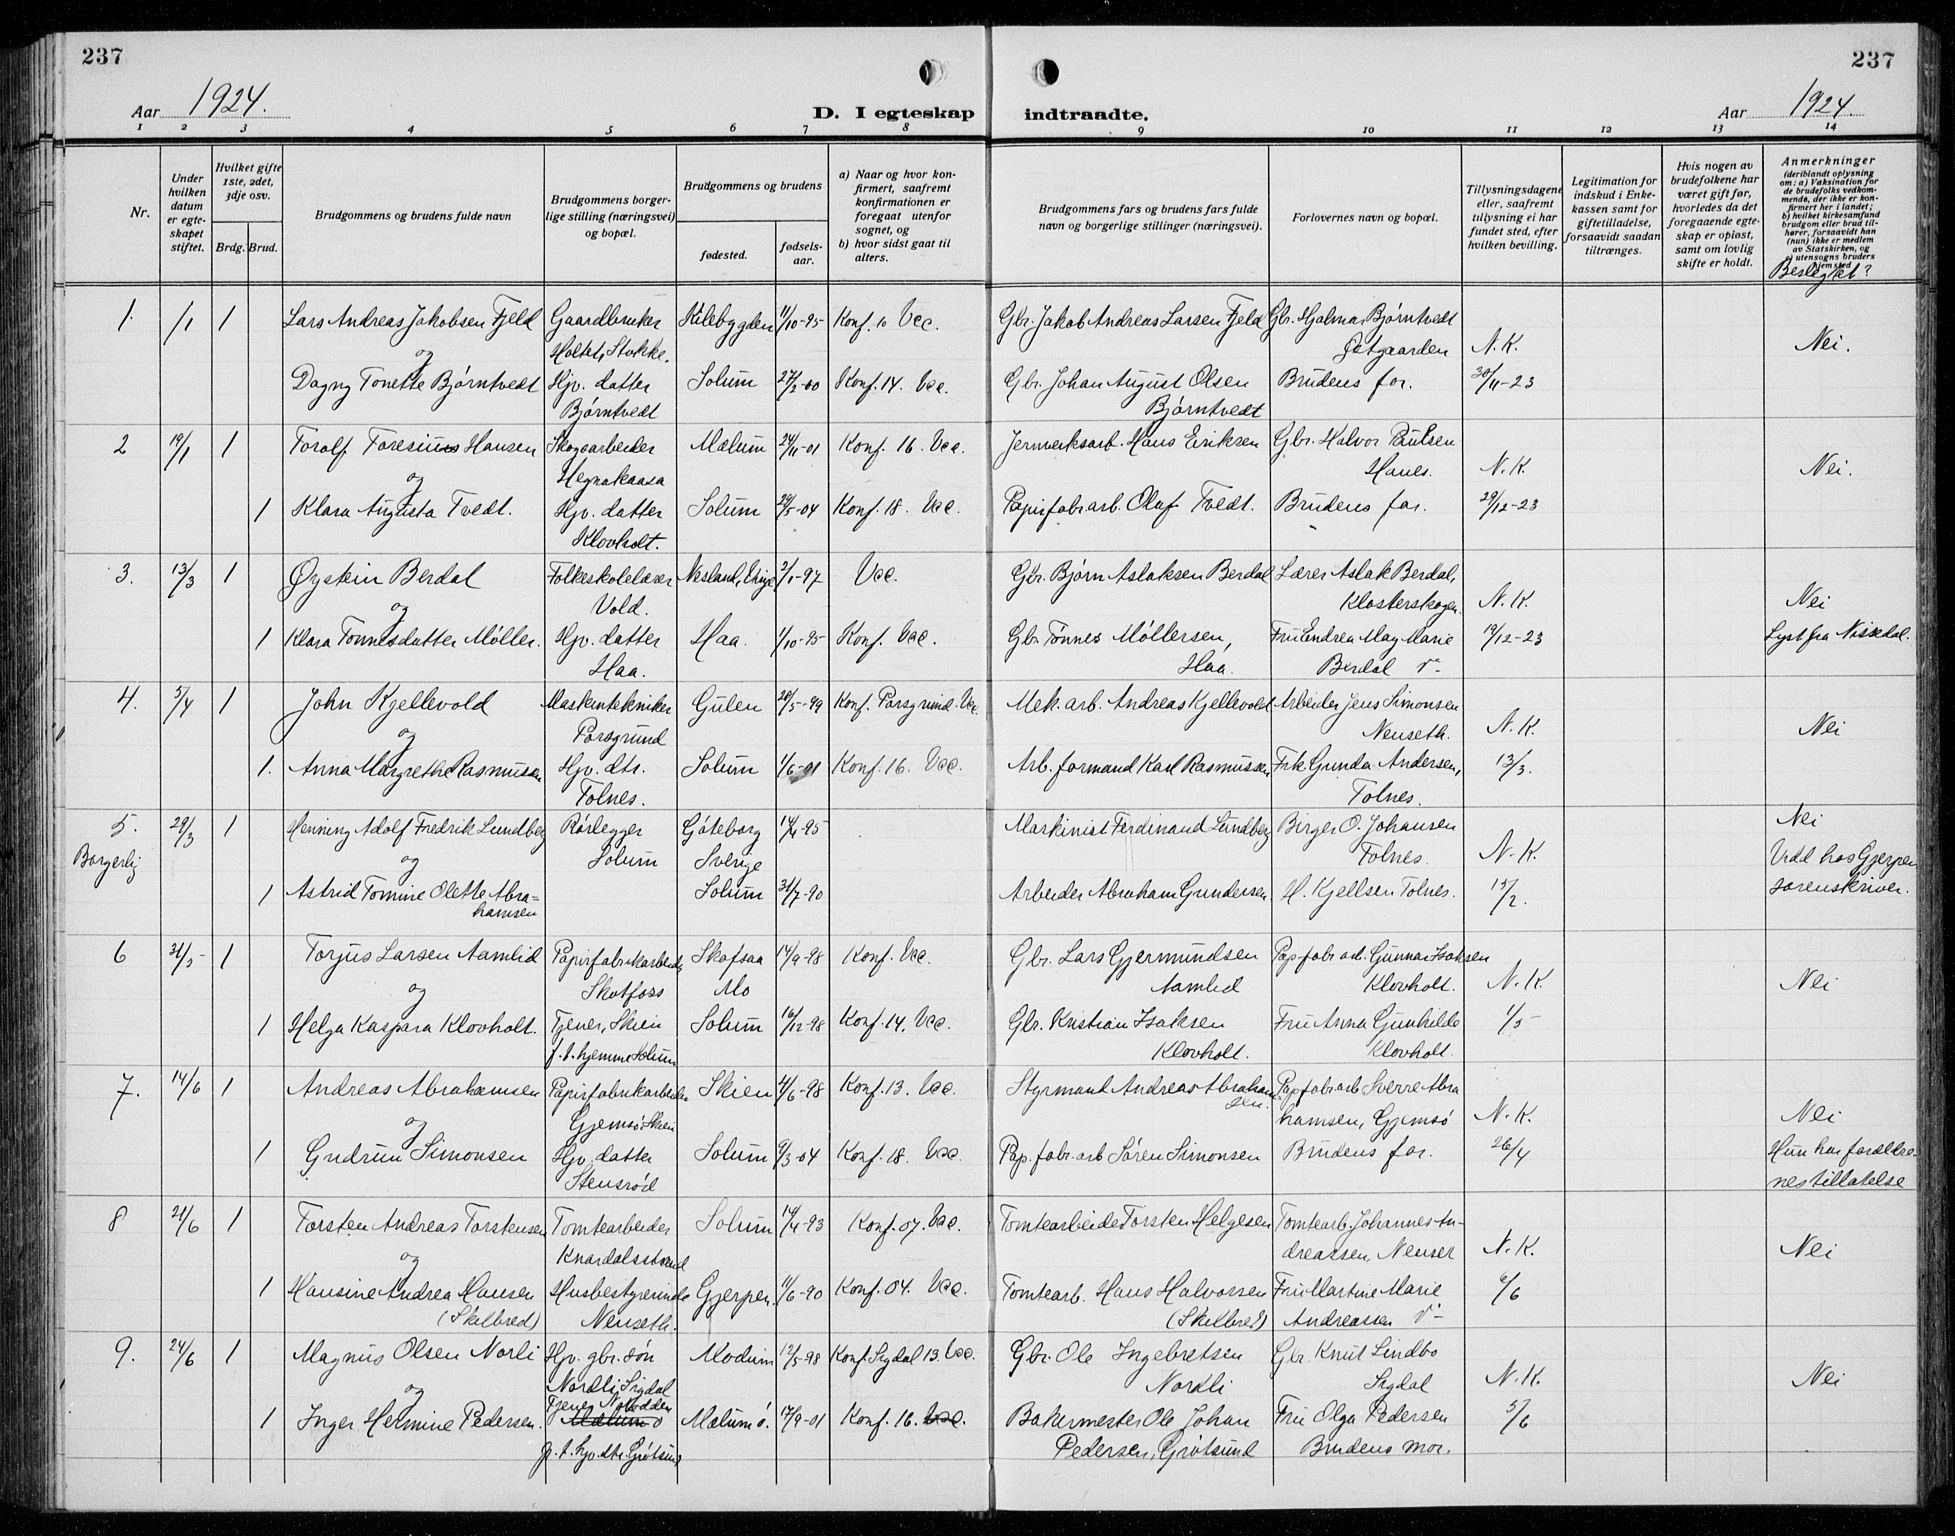 237
237
Aar 1924.
D. I egteskap
indtraadte.
Aar 1924.
1 2 3 4 5 6 7 8 9 10 11 12 13 14
Nr.
Under hvilken datum er egteskapet stiftet.
Hvilket gifte 1ste, 2det, 3dje osv.
Brdg. Brud.
Brudgommens og brudens fulde navn
Brudgommens borgerlige stilling (næringsvei) og bopæl.
Brudgommens og brudens
fødested.
fødselsaar.
a) Naar og hvor konfirmert, saafremt konfirmationen er foregaat utenfor sognet, og
b) hvor sidst gaat til alters.
Brudgommens fars og brudens fars fulde navn og borgerlige stillinger (næringsvei).
Forlovernes navn og bopæl.
Tillysningsdagene eller, saafremt tillysning ei har fundet sted, efter hvilken bevilling.
Legitimation for indskud i Enkekassen samt for giftetilladelse, forsaavidt saadan tiltrænges.
Hvis nogen av brudefolkene har været gift før, hvorledes da det foregaaende egteskap er opløst, samt om lovlig skifte er holdt.
Anmerkninger
(deriblandt oplysning om: a) Vaksination for de brudefolks vedkommende, der ikke er konfirmert her i landet;
b) hvilket kirkesamfund brudgom eller brud tilhører, forsaavidt han (hun) ikke er medlem av Statskirken, og
c) utensogns bruders hjemsted
Beslegtet?
1. 1/1 1 Lars Andreas Jakobsen Fjeld Gaardbruker Kilebygden 11/10-95 Konf. 10 Vac. Gbr. Jakob Andreas Larsen Fjeld Gbr. Hjalmar Bjørntvedt
og Holtet, Stokke. Øotgaarden N. K. Nei.
Dagny Tonette Bjørntvedt Hjv. datter Solum 27/2-00 Konf. 14. Vac. Gbr. Johan August Olsen Brudens far. 30/11-23
Bjørntvedt Bjørntvedt
2 19/1 1 Torolf Hansen Skogsarbeider Mælum 24/11-01 Konf. 16. Vac. Jernverksarb. Hans Eriksen Gbr. Halvor Paulsen
og Hegnakaasa Hanes. N. K. Nei.
1 Klara Augusta Tvedt. Hjv. datter Solum 29/5-04 Konf. 18. Vac. Papirfabr.arb. Oluf Tvedt. Brudens far. 29/12-23
Klovholt.
3. 13/3 1 Øystein Berdal Folkeskolelærer Nesland, Vinje 2/1-97 Vac. Gbr. Bjørn Aslaksen Berdal Lærer Aslak Berdal,
og Vold. Klosterskogen. N. K. Nei
1 Klara Tønnesdatter Møller. Hjv. datter Haa. 1/10-95 Konf. Vac. Gbr. Tønnes Møllersen, Fru Endrea May Marie 19/12-23 Lyst fra Nissedal.
Haa. Haa. Berdal
4. 5/4 1 John Kjellevold Maskintekniker Gulen 28/5-99 Konf. Porsgrund. Vac. Mek. arb. Andreas Kjellevold Arbeider Jens Simonsen
og Porsgrund Nenseth. N. K. Nei
1. Anna Margrethe Rasmussen Hjv. dtr. Solum 1/6-01 Konf. 16. Vac. Arb. formand Karl Rasmussen, Frk. Gunda Andersen, 13/3.
Tolnes. Tolnes.
5. 29/3 1 Henning Adolf Fredrik Lundberg Rørlegger Gøteborg 14/4-95 Maskinist Ferdinand Lundberg Birger O. Johansen Nei
Borgerlig og Solum Sverige Tolnes. N. K. Viet hos Gjerpen
1 Astrid Tomine Olette Abra= Solum 31/7-90 Arbeider Abraham Gundersen H. Kjellsen Tolnes. 15/2. sorenskriver.
hamsen
6 31/5 1 Torjus Larsen Aamlid Papirfabrikarbeider Skafsaa 14/9-98 Konf. Vac. Gbr. Lars Gjermundsen Papfabr.arb. Gunnar Isaksen
og Skotfoss Mo Aamlid Klovholt. N. K. Nei
1 Helga Kaspara Klovholt. Tjener, Skien Solum 16/12-98 Konf. 14. Vac. Gbr. Kristian Isaksen Fru Anna Gunhilde 1/5
f. t. hjemme Solum Klovholt. Klovholt.
7. 14/6 1 Andreas Abrahamsen Papirfabrikarbeider Skien 4/6-98 Konf. 13. Vac. Styrmant Andreas Abraham Papfabr.arb Sverre Abra
og Gjemsø Skien sen. hamsen, Gjemsø N. K. Nei
1 Gudrun Simonsen Hjv. datter Solum 9/3-04 Konf. 18. Vac. Pap. fabr. arb Søren Simonsen Brudens far. 26/4 Hun har forældre
Stensrød nes tillatelse
8 21/6 1 Torsten Andreas Torstensen Tomtearbeider Solum 14/4-93 Konf. 07. Vac. Tomtearbeider Torsten Helgesen Tomtearb. Johannes An-
og Knardalsstrand dreassen, Nenset N. K. Nei
1 Hansine Andrea Hansen Husbestyrerinde Gjerpen. 11/6-90 Konf. 04. Vac. Tomtearb. Hans Halvorsen Fru Martine Marie 6/6
(Skilbred) Nenseth. (Skilbred) Andreassen
9. 24/6 1 Magnus Olsen Norli Hjv. gbr. søn Modum 12/5-98 Konf. Sigdal 13. Vac. Gbr. Ole Ingebretsen Gbr. Knut Lindbo
og Nordli Sigdal Nordli Sigdal N. K. Nei
Tjener Notodden
1 Inger Hermine Pedersen. Mælumø Mælumø. 17/9-01 Konf. 16. Vac. Bakermester Ole Johan Fru Olga Pedersen 5/6
f. t. hjv. dtr. Grøtsund Pedersen, Grøtsund Brudens mor.